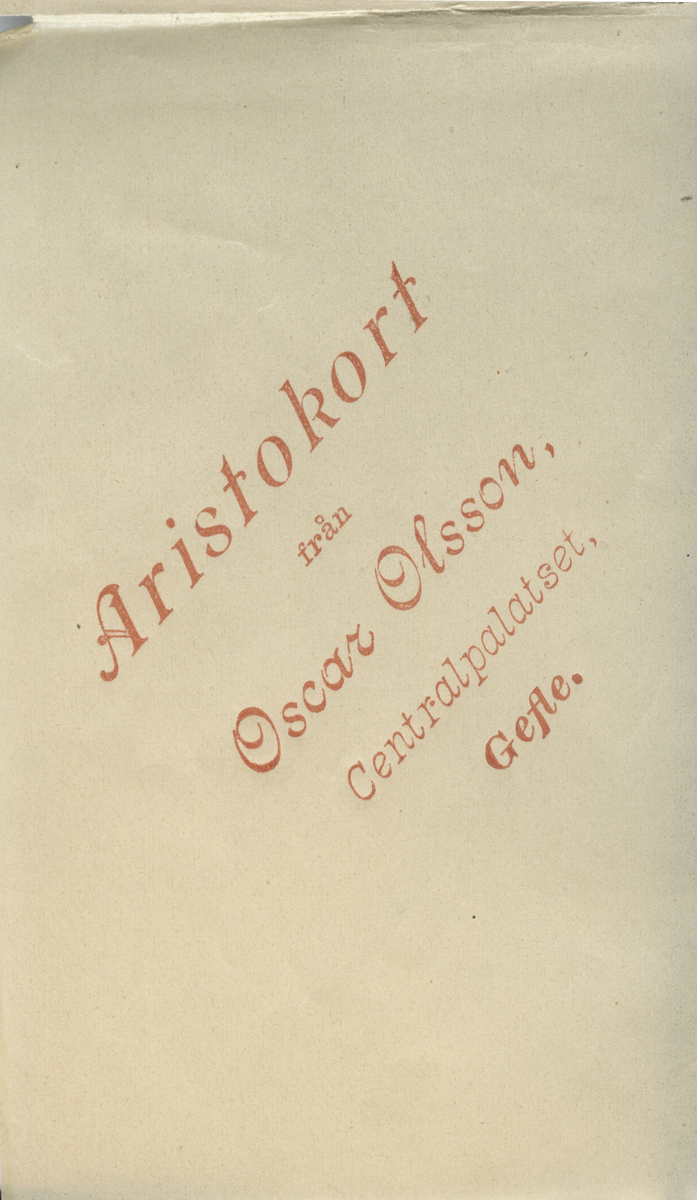 Aristokort
från
Oscar Olsson,
Centralpalatset,
Gefle.